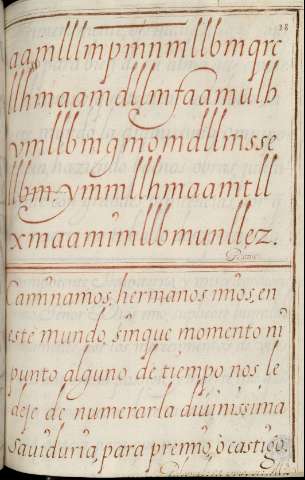 28
aamlllmpmnmllbmqre
llhmaamdllmfaamulb
ymllbmqmomdllmsse
llbm.ymmllhmaamtll
xmaamimllbmunllez.
Caminamos, hermanos mios, en
este mundo, sinque momento ni
punto alguno de tiempo nos le
deje de numerar la divinissima
Saviduria, para premio, ò castigo.